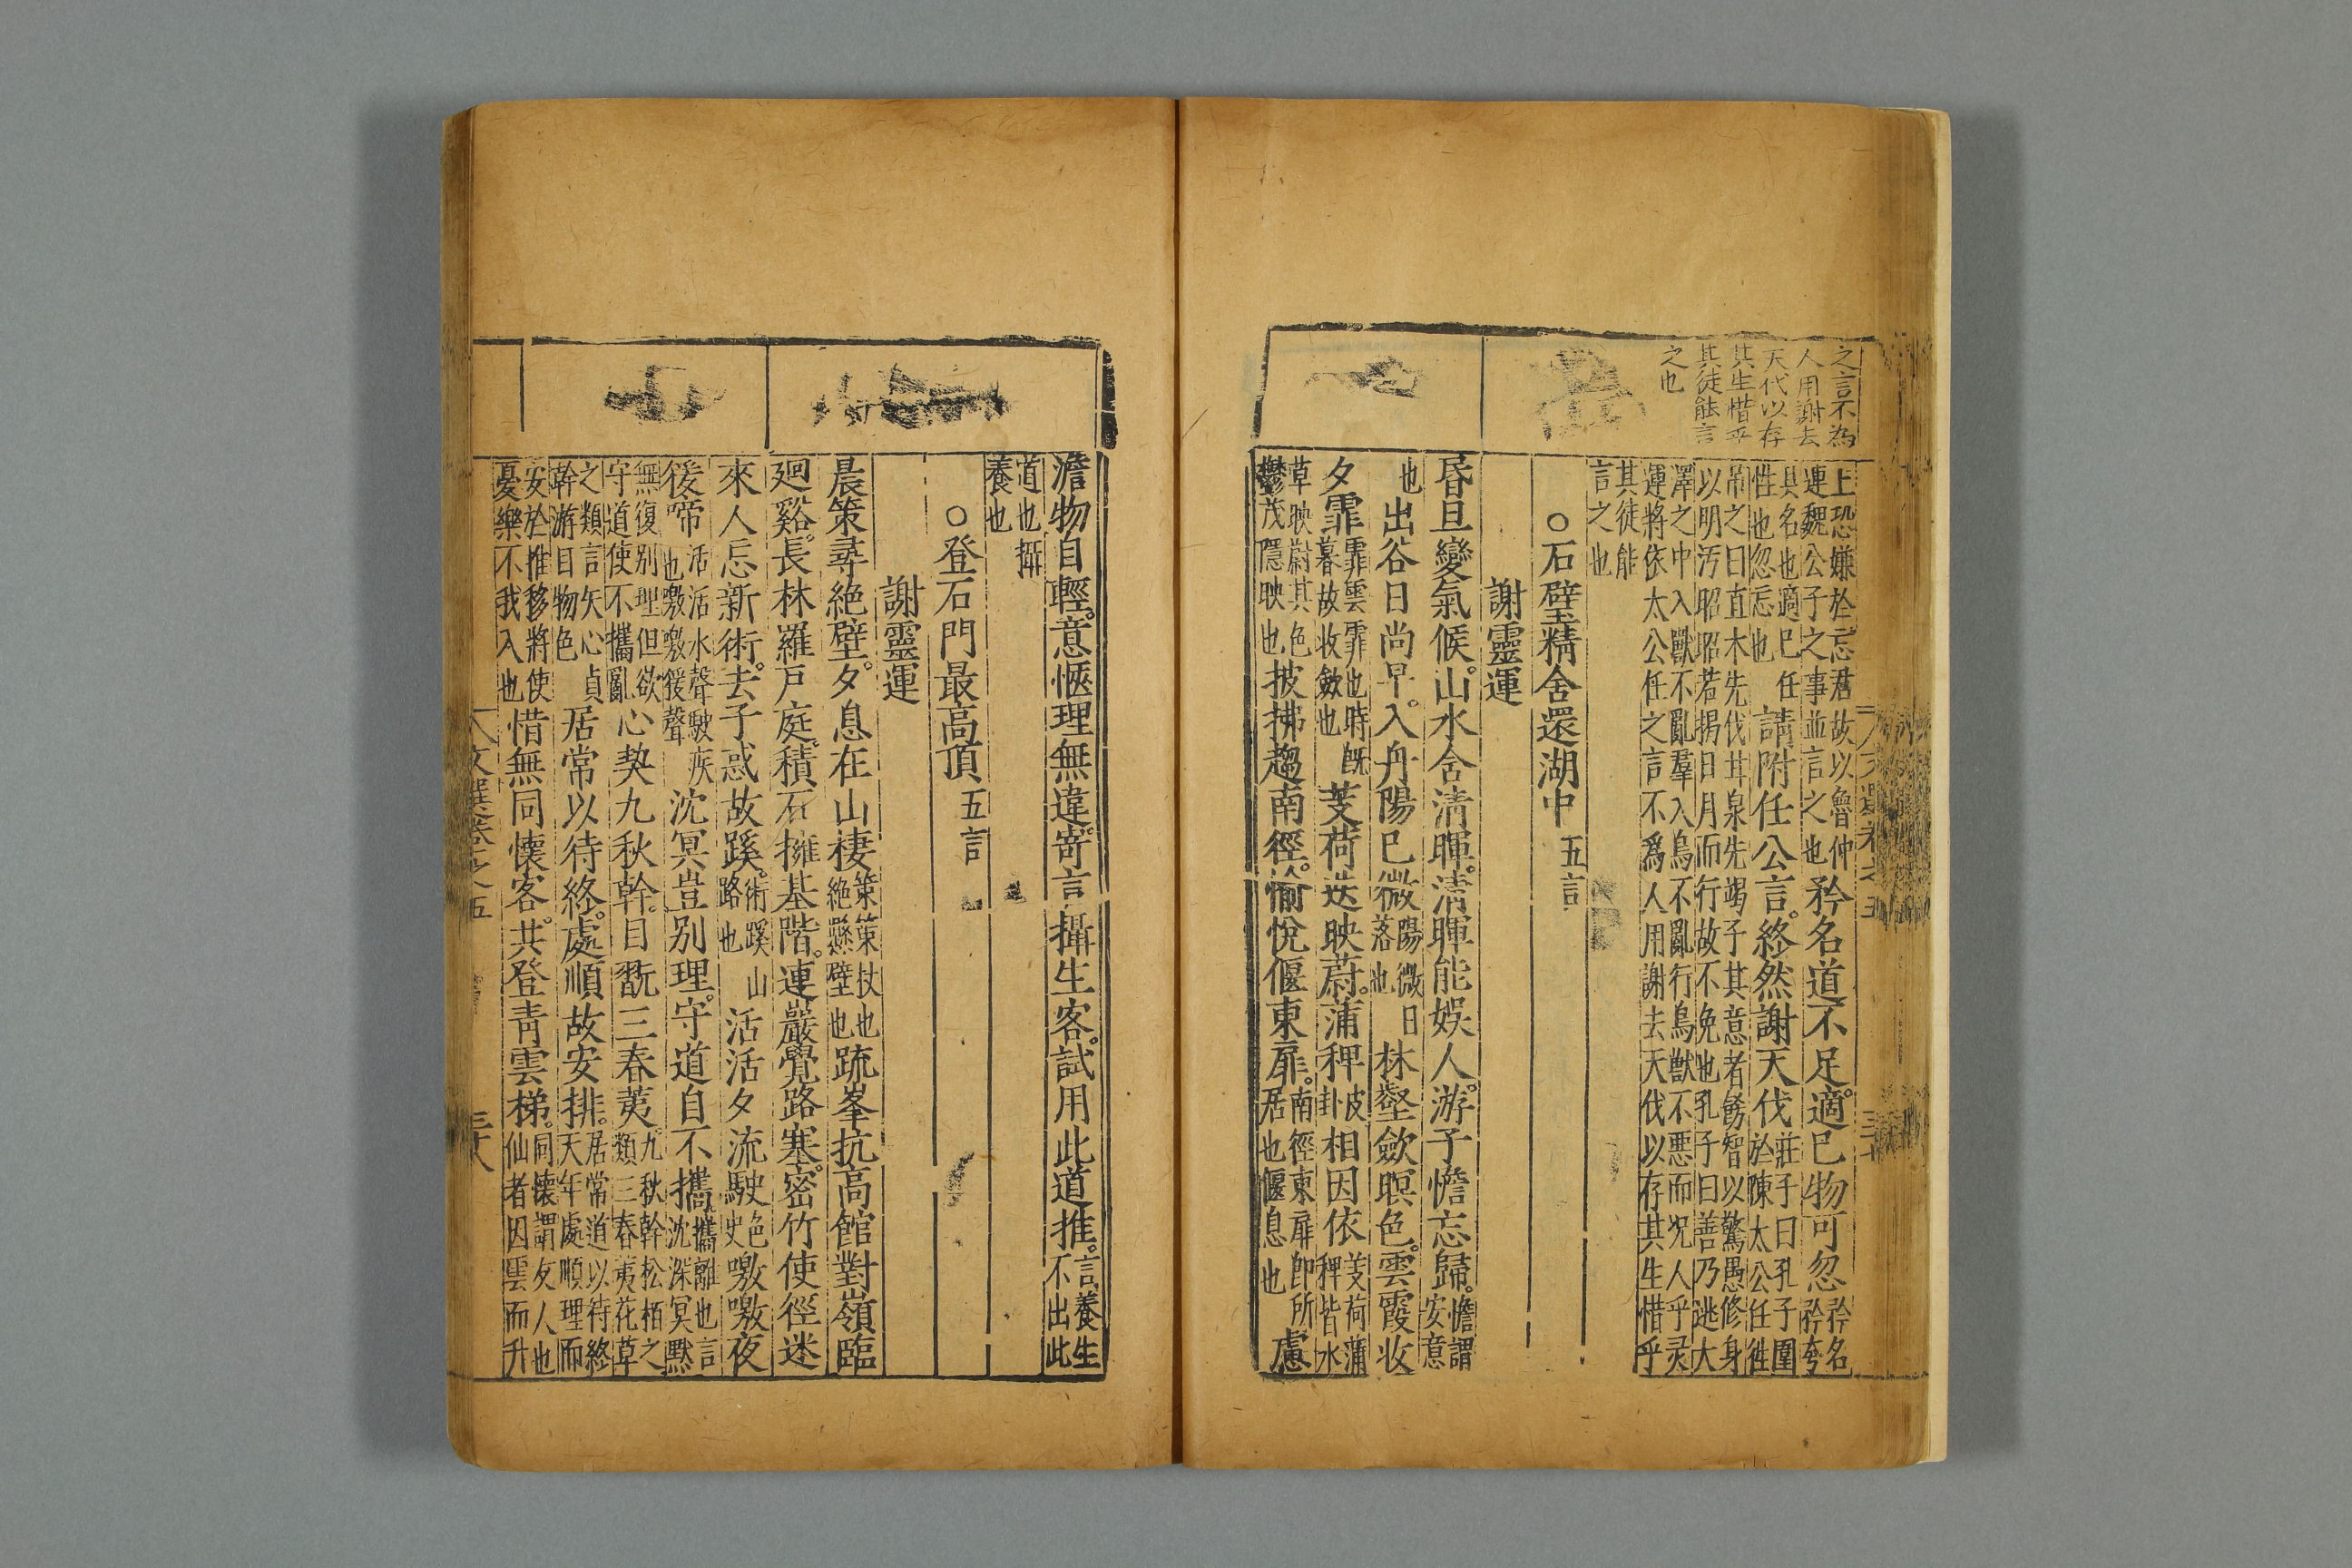 之言不為
人用謝去
天代以存
其生惜乎
其徒能言
之也
上恐嫌於忘君故以魯仲
連魏公子之事並言之也矜名道不足適已物可忽矜名
矜夸
具名也適已任
性也忽忘也請附任公言終然謝天伐莊子曰孔子圍
於陳太公任徃
吊之曰直木先伐甘泉先竭子其意者餙智以驚愚修身
以明汚昭昭若揭日月而行故不免也孔子曰善乃逃大
澤之中入獸不亂羣入鳥不亂行鳥獸不悪而况人乎灵
運將依太公任之言不爲人用謝去天伐以存其生惜乎
其徒能
言之也
○石壁精舍還湖中五言
謝靈運
昏旦變氣候山水含清暉清暉能娛人游子憺忘歸憺謂
安意
也出谷日尚早入舟陽已微陽微日
落也林壑歛暝色雲霞收
夕霏霏雲霏也時旣
暮故收歛也芰荷迭映蔚蒲稗皮
卦相因依芰荷蒲
稗皆水
草映蔚其色
鬱茂隱映也披拂趨南徑愉悅偃東扉南徑東扉即所
居也偃息也慮
澹物自輕意愜理無違寄言攝生客試用此道推言養生
不出此
道也攝
養也
○登石門最高頂五言
謝靈運
晨策尋絶壁夕息在山棲策策杖也
絶懸壁也䟽峯抗高館對嶺臨
廻谿長林羅戸庭積石擁基階連巖覺路塞密竹使徑迷
來人忘新術去子惑故蹊術蹊山
路也活活夕流駛色
史噭噭夜
猨啼活活水聲駛疾
也噭噭猨聲沈冥豈别理守道自不攜攜離也言
沈深冥黙
無復别理但欲
守道使不攜亂心契九秋幹目翫三春荑九秋幹松栢之
類三春荑花草
之類言矢心貞
幹游目物色居常以待終處順故安排居常道以待終
天年處順理而
安於推移將使
憂樂不我入也惜無同懷客共登青雲梯同懷謂友人也
仙者因雲而升
文選卷之五
三十八